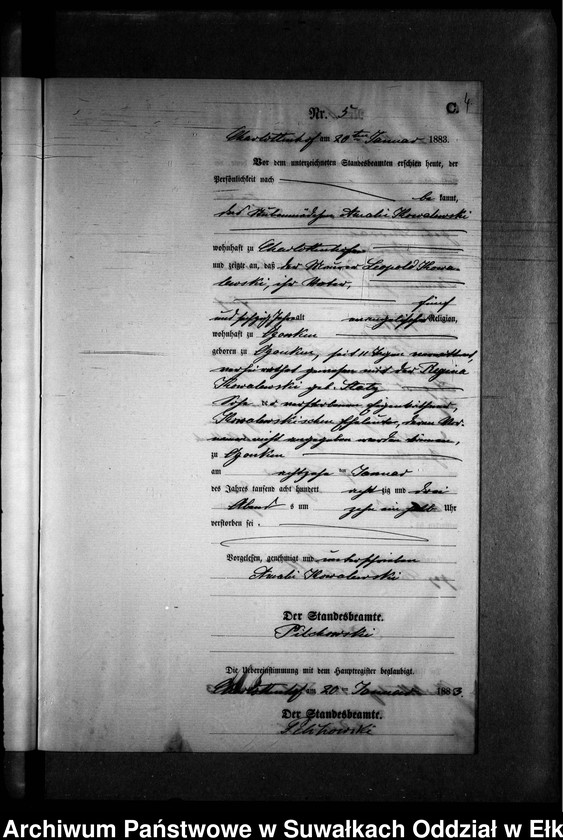 Nr. 5
C. 4
Charlottenhof am 20ten Januar 1883.
Vor dem unterzeichneten Standesbeamten erschien heute, der
Persönlichkeit nach
be kannt,
das Amali Kowalewski
wohnhaft zu Charlottenhof
und zeigte an, daß der Maurer Leopold Kowa-
lewski, ihr Vater,
fünf
und sechzig Jahre alt evangelischer Religion,
wohnhaft zu Czonken
geboren zu Czonken, seit 11 verwittwet,
verheirathet gewesen mit der Regina
Kowalewski geb.
Sohn der verstorbenen Eigenkäthner
Kowalewskischen Eheleute, deren Vor-
namen nicht angegeben werden können,
zu Czonken
am achtzehn ten Januar
des Jahres tausend acht hundert acht zig und drei
Abend s um zehn ein halb Uhr
verstorben sei.
Vorgelesen, genehmigt und unterschrieben
Amali Kowalewski
Der Standesbeamte.
Pilchowski
Die Uebereinstimmung mit dem Hauptregister beglaubigt.
Charlottenhof am 20ten Januar 1883.
Der Standesbeamte.
Pilchowski
Archiwum Państwowe w Suwałkach Oddział w Ełk